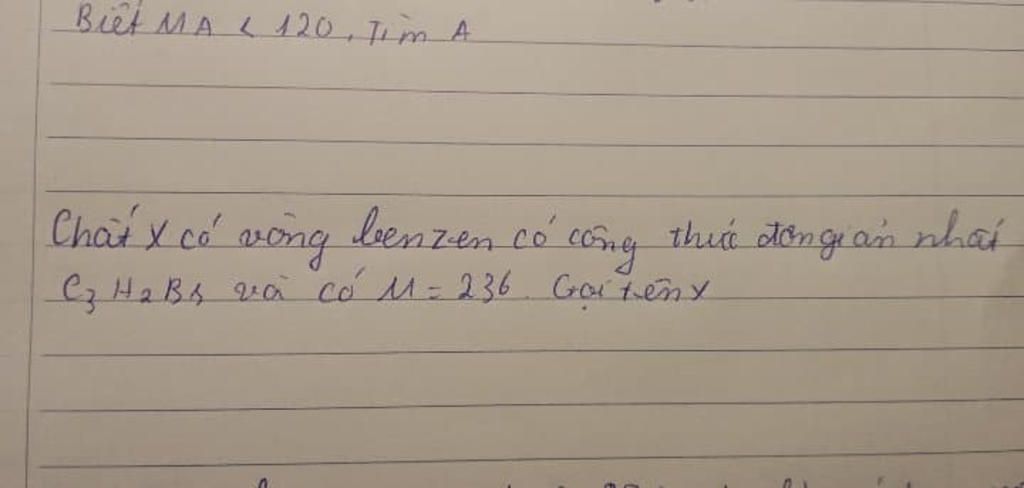 Biết MA < 120, Tìm A
Chất X có vòng benzen có công thức đơn giản nhất
C3H2Br và có M = 236. Gọi tên X